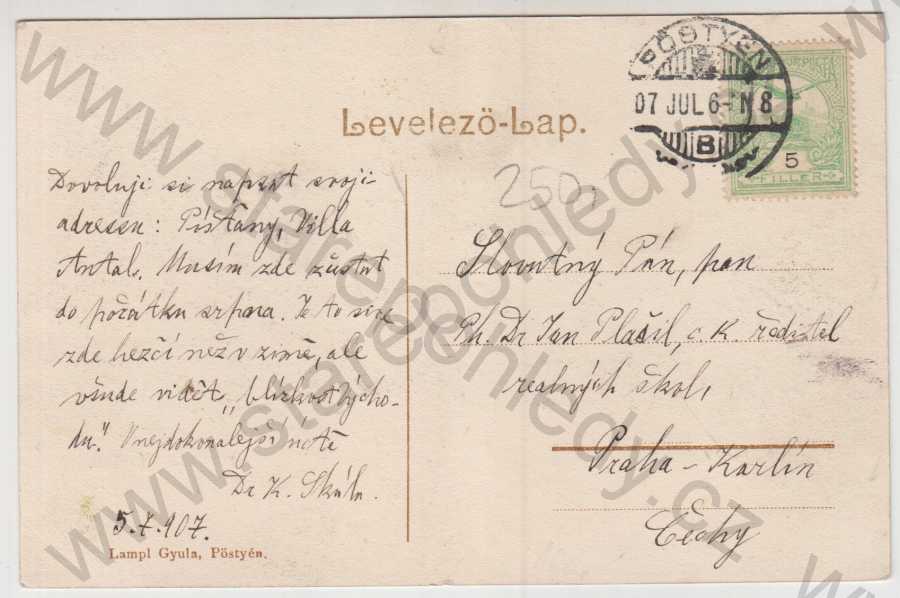 PÖSTYÉN
07 JUL 6-N 8
B
5
FILLER
Levelező-Lap.
250,
Dovoluji si napsat svoji
adresu: Píšťany, Villa
Antal. Musím zde zůstat
do počátku srpna. Je to sice
zde hezčí než v zimě, ale
všude vidět „blízkost výcho-
du". V nejdokonalejší úctě
Dr K. Skála.
5.7.907.
Lampl Gyula, Pöstyén.
Slovutný Pán, pan
Ph. Dr Jan Plašil, c. k. ředitel
reálných škol,
Praha - Karlín
Čechy
www.starepohledy.cz
www.starepohledy.cz